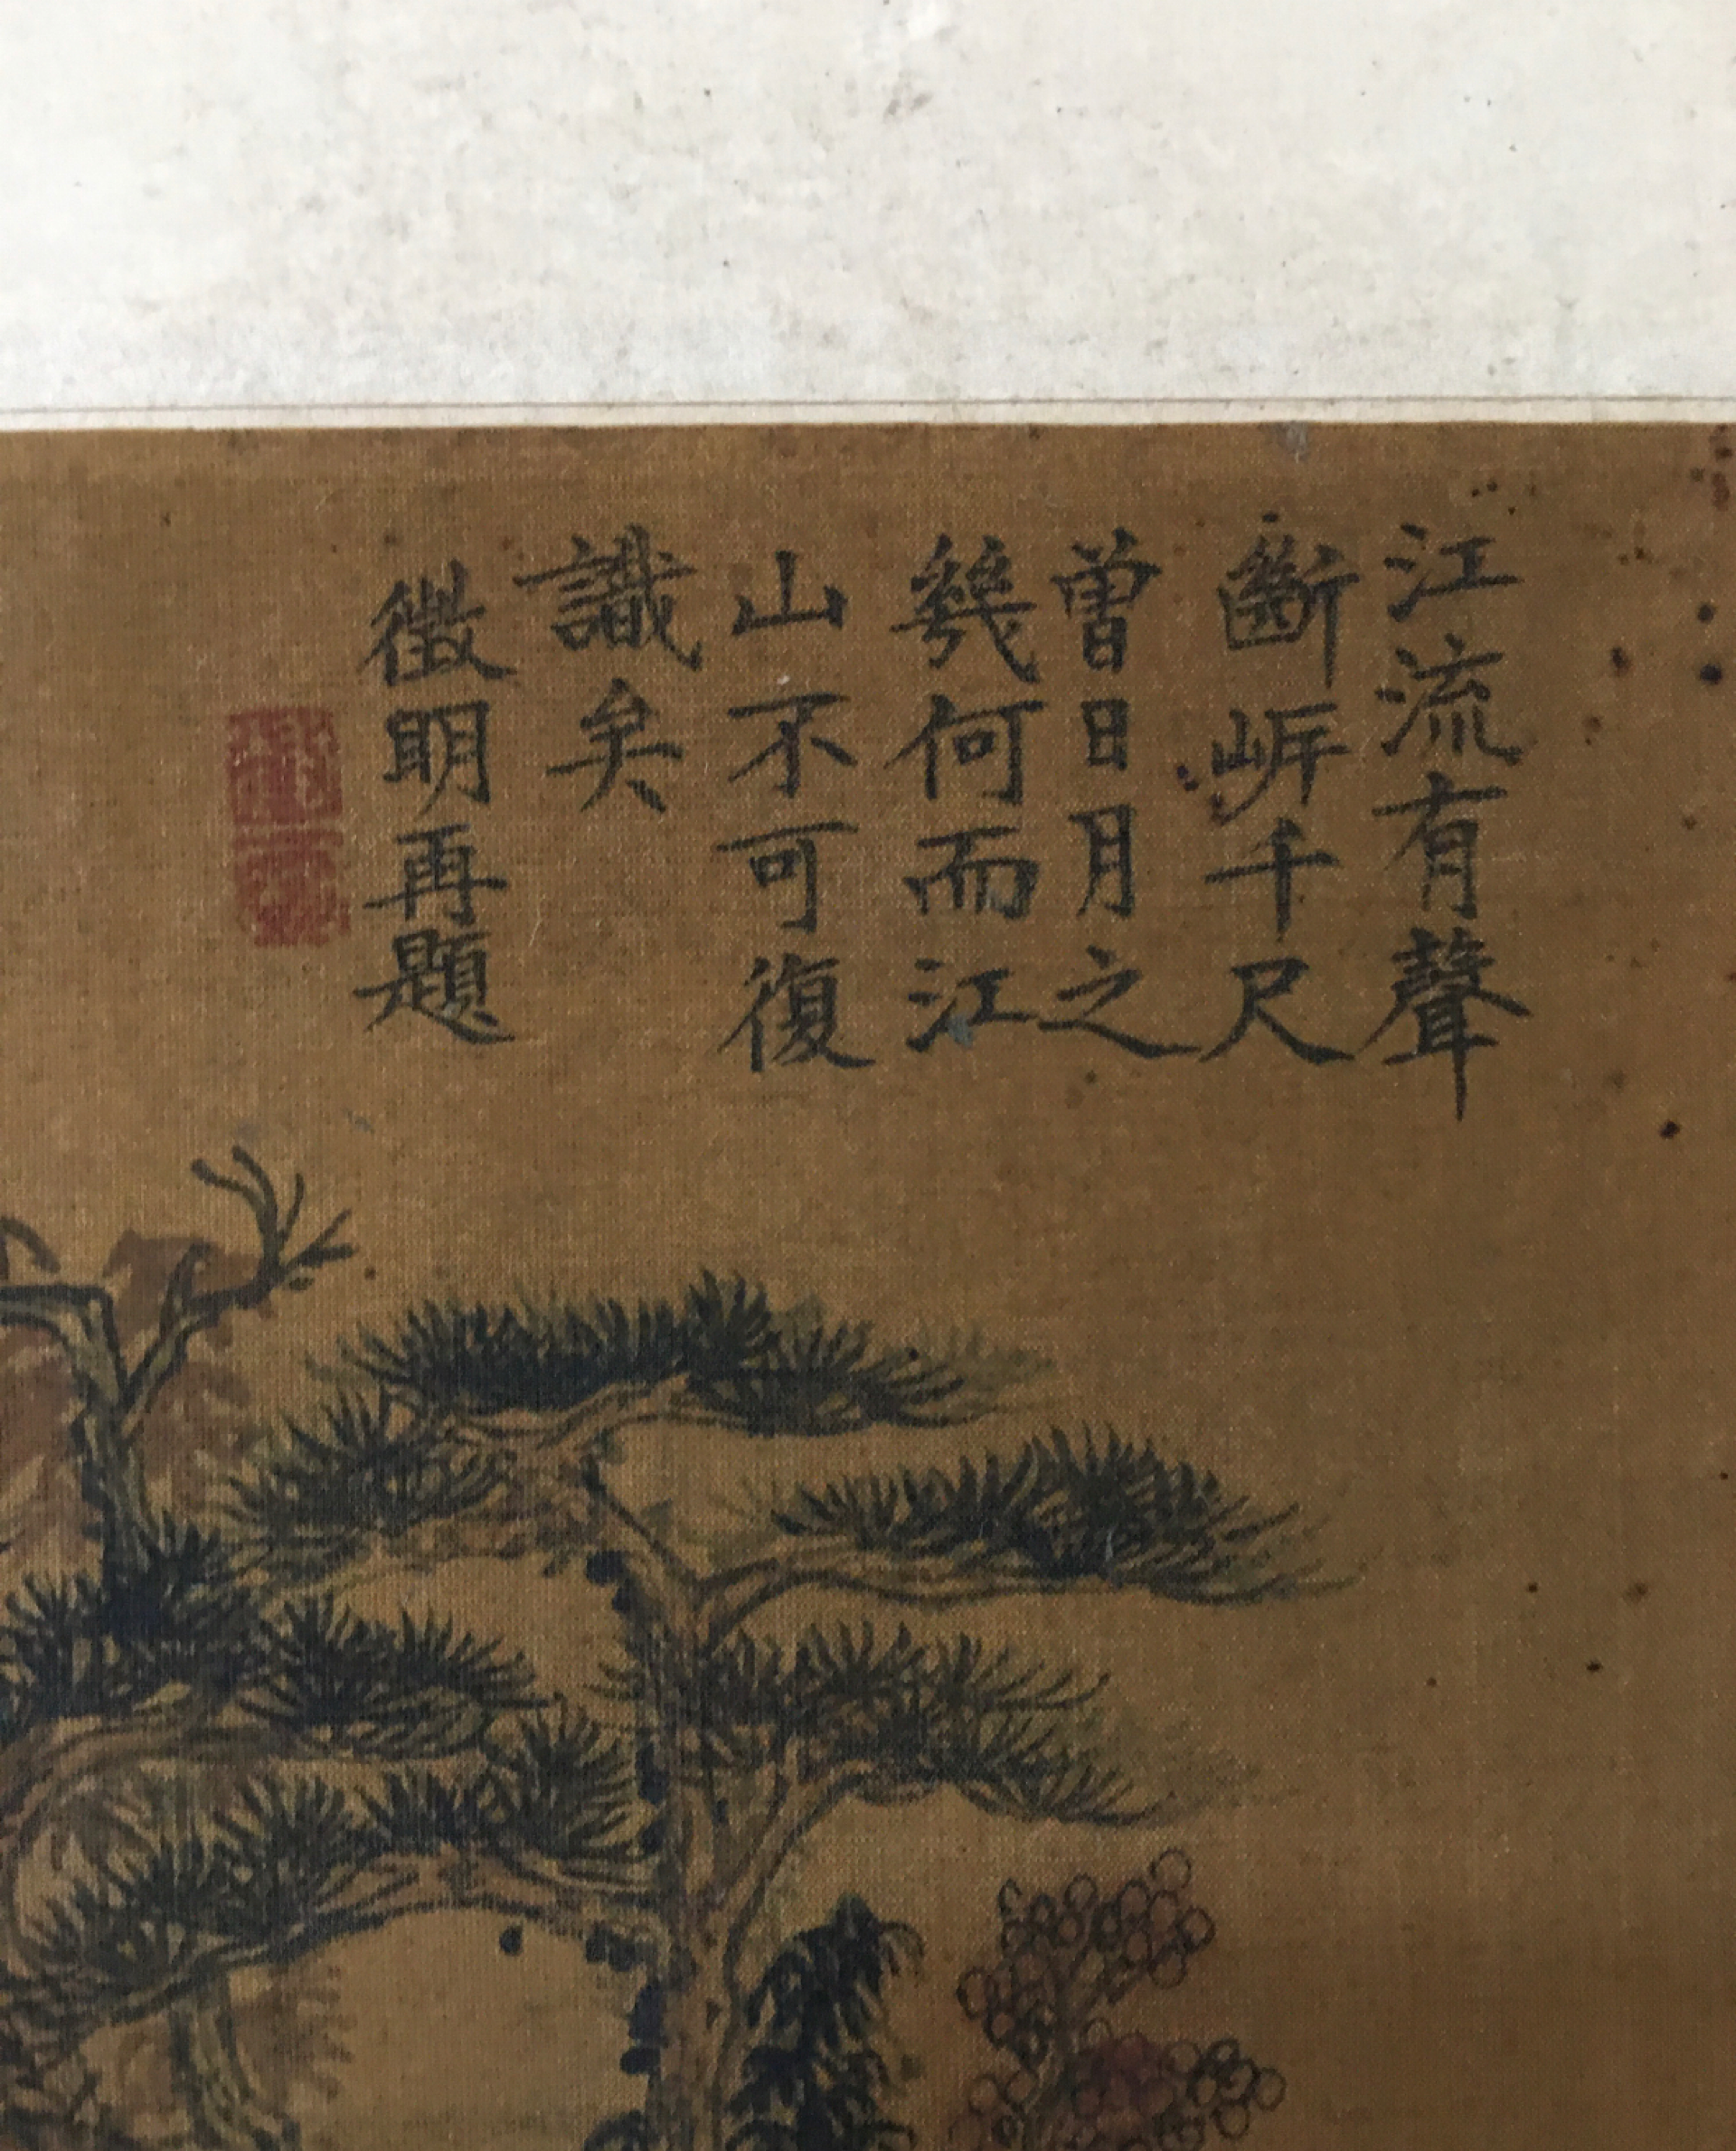 江流有聲
斷岸千尺
曾日月之
幾何而江
山不可復
識矣
徵明再題